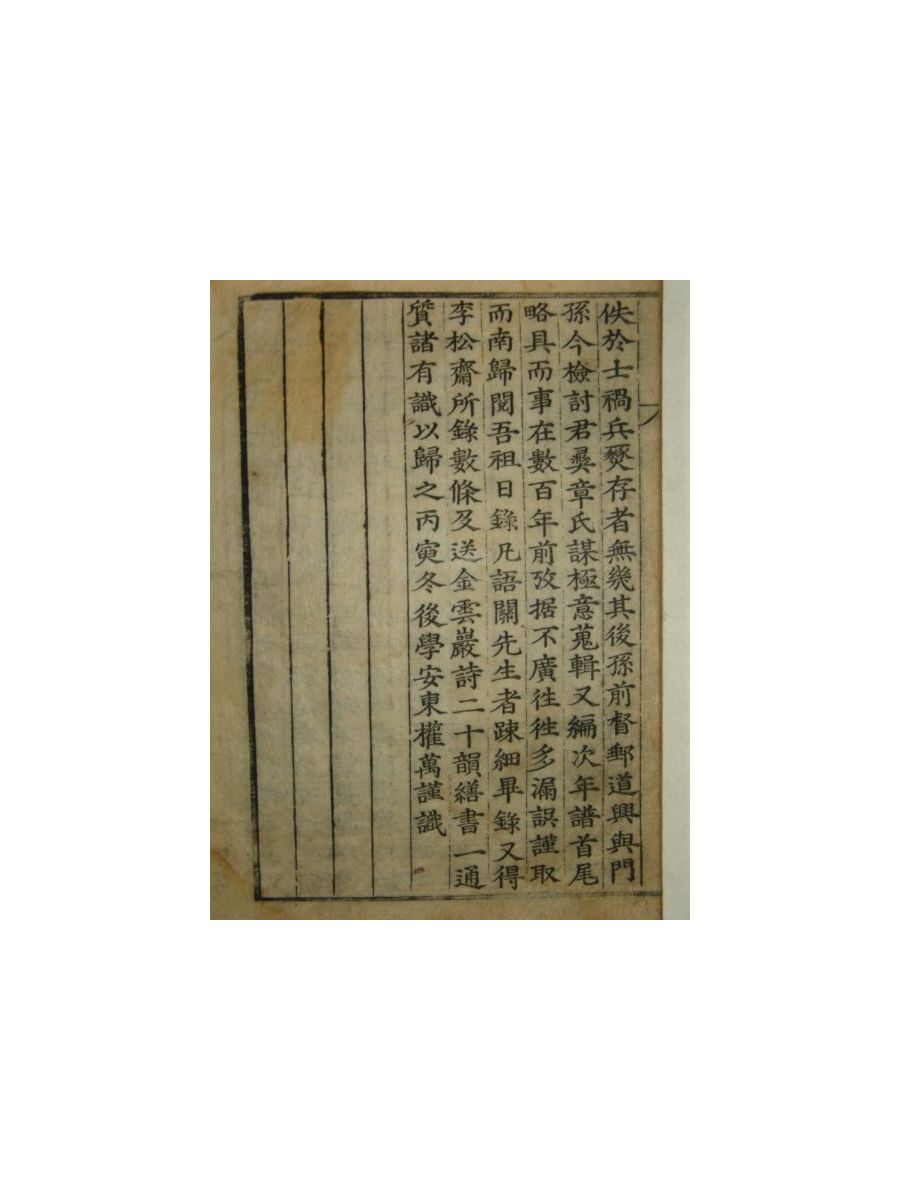 佚於士禍兵燹存者無幾其後孫前督郵道興與門
孫今檢討君彛章氏謀極意蒐輯又編次年譜首尾
略具而事在數百年前攷据不廣徃徃多漏誤謹取
而南歸閱吾祖日錄凡語關先生者踈細畢錄又得
李松齋所錄數條及送金雲巖詩二十韻繕書一通
質諸有識以歸之丙寅冬後學安東權萬謹識